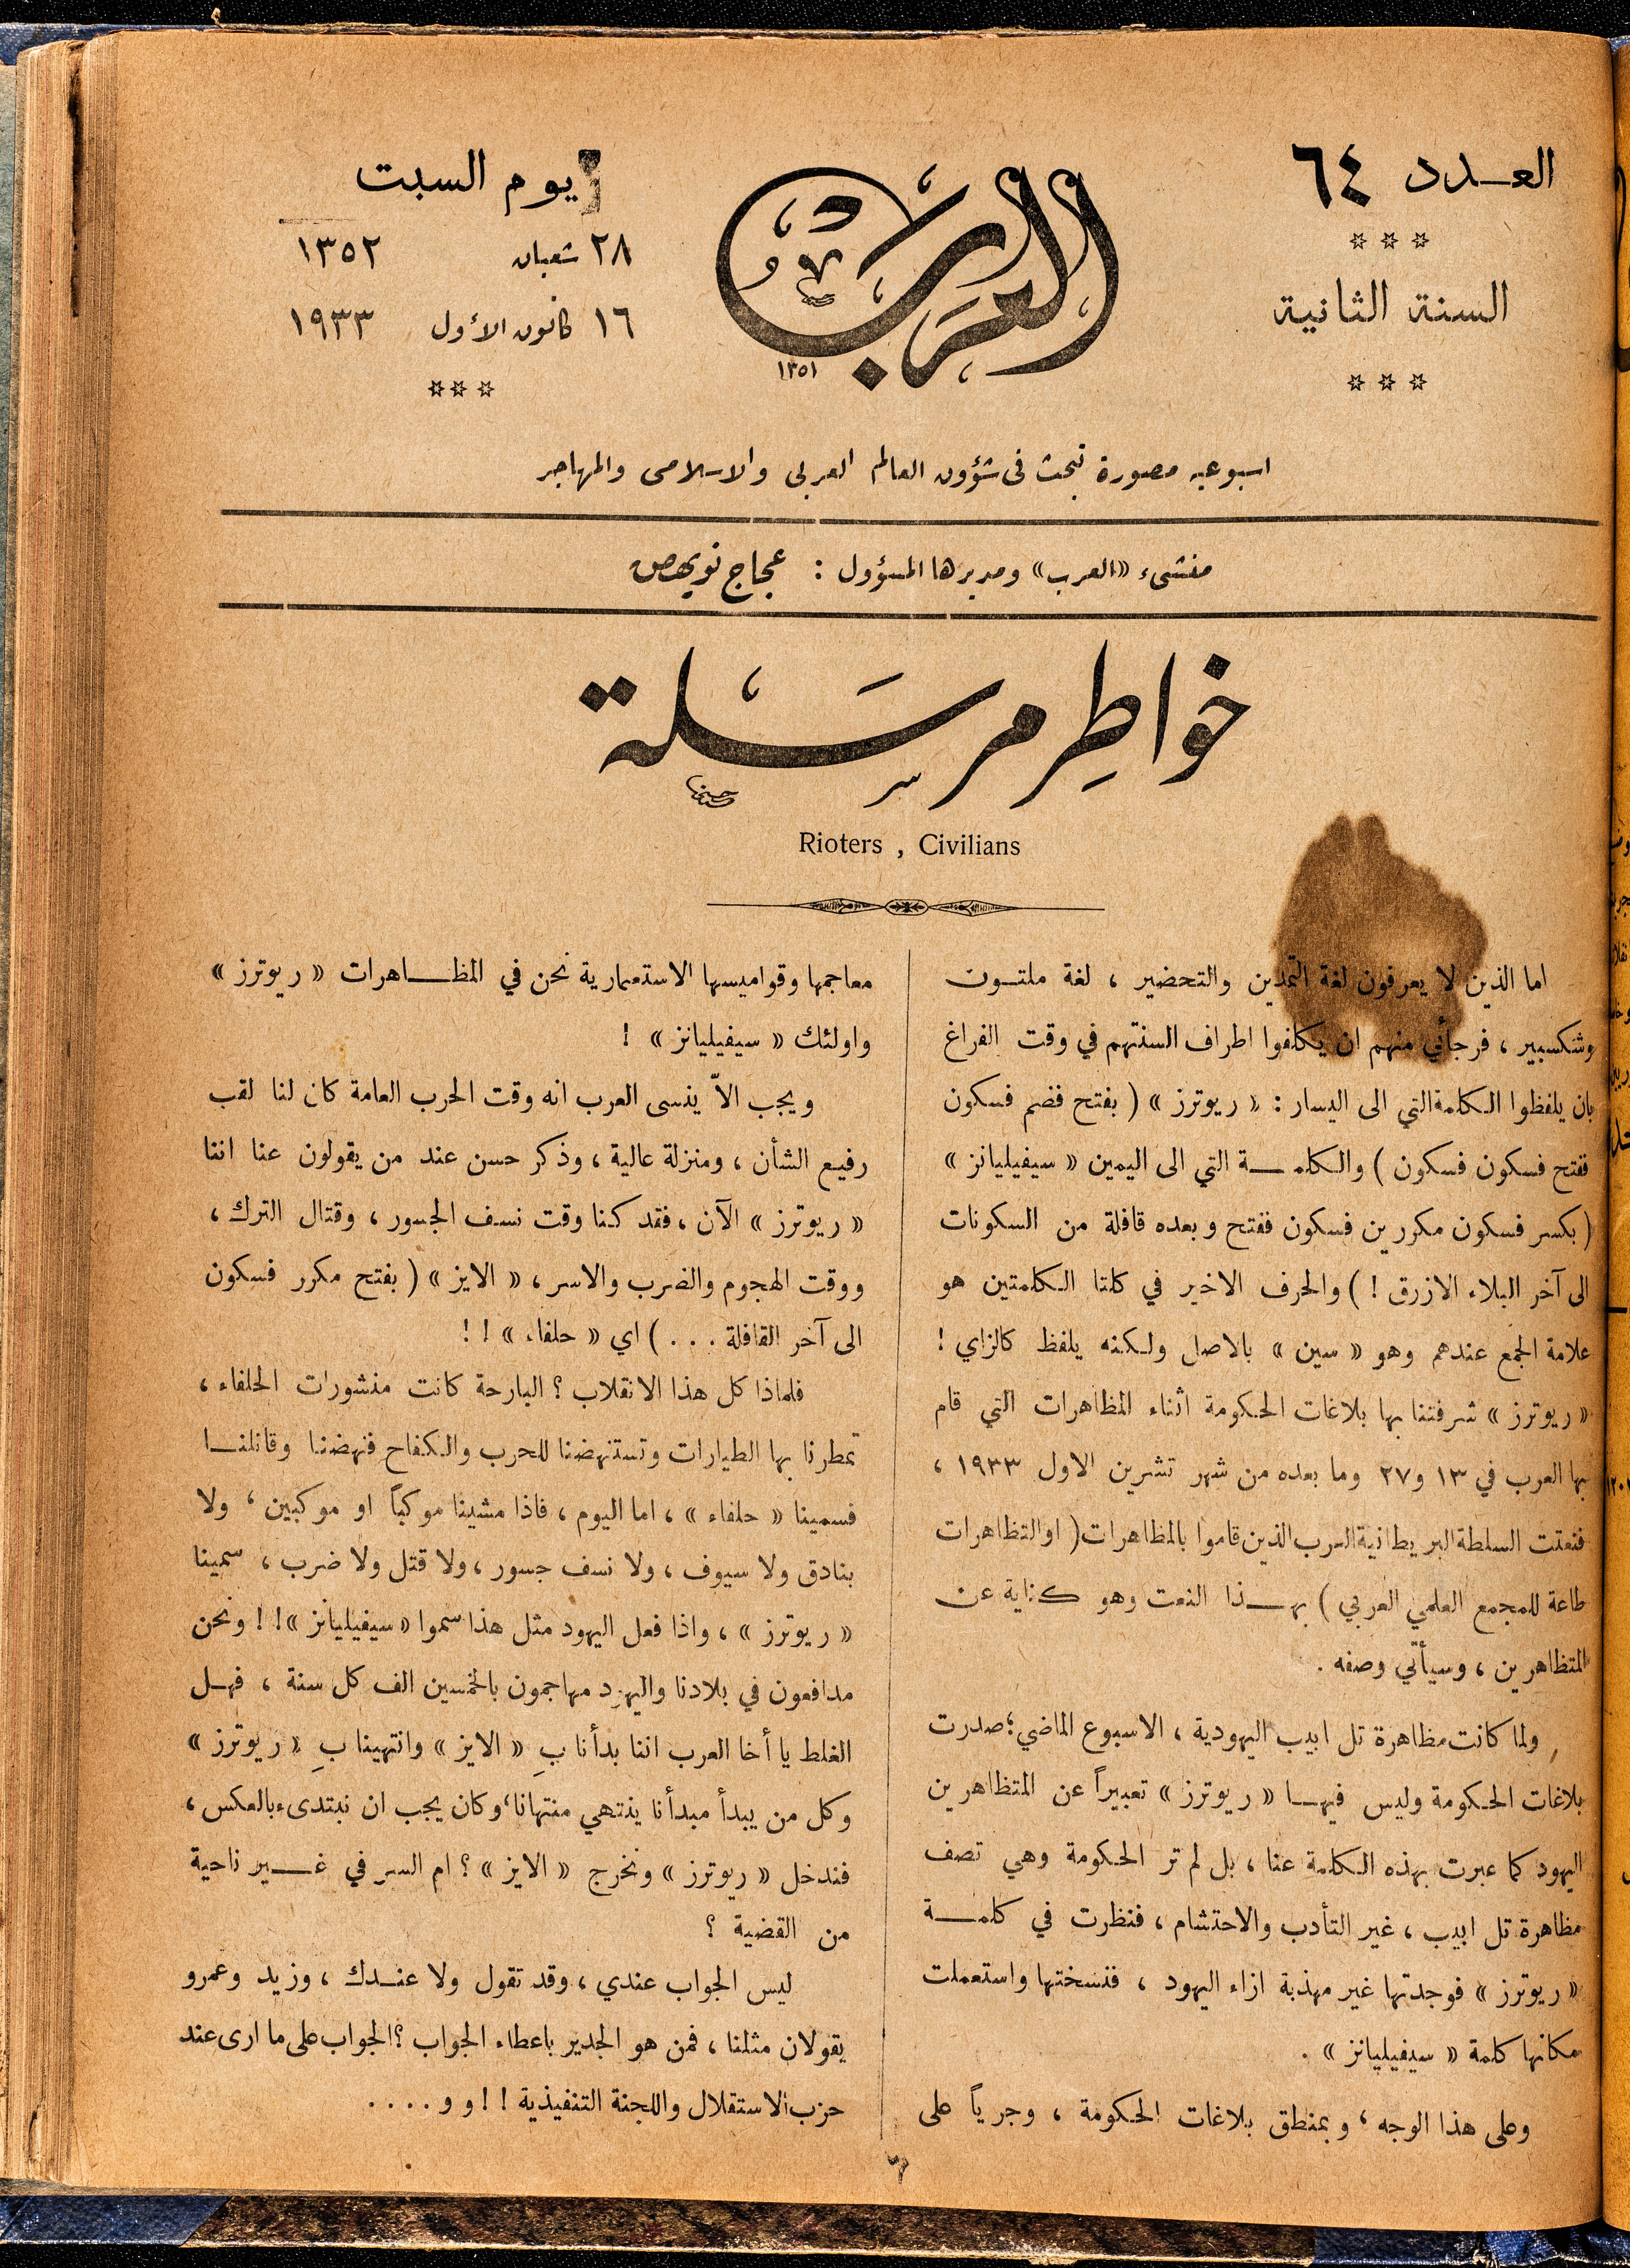 العـدد ٦٤
السنة الثانية
العرب
١٣٥١
يوم السبت
٢٨ شعبان ١٣٥٢
١٦ كانون الأول ١٩٣٣
اسبوعية مصورة تبحث في شؤون العالم العربي والاسلامي والمهاجر
منشىء «العرب» ومديرها المسؤول : عجاج نويهض
خواطر مرسلة
Rioters , Civilians
اما الذين لا يعرفون لغة التمدين والتحضير ، لغة ملتـون
وشكسبير ، فرجأئي منهم ان يكلفوا اطراف السنتهم في وقت الفراغ
بان يلفظوا الكلمة التي الى اليسار : « ريوترز » ( بفتح فضم فسكون
ففتح فسكون فسكون ) والكلمـــة التي الى اليمين « سيفيليانز »
( بكسر فسكون مكررين فسكون ففتح وبعده قافلة من السكونات
الى آخر البلاء الازرق ! ) والحرف الاخير في كلتا الكلمتين هو
علامة الجمع عندهم وهو « سين » بالاصل ولكنه يلفظ كالزاي !
« ريوترز » شرفتنا بها بلاغات الحكومة اثناء المظاهرات التي قام
بها العرب في ١٣ و٢٧ وما بعده من شهر تشرين الاول ١٩٣٣ ،
فنعتت السلطة البريطانية العرب الذين قاموا بالمظاهرات ( او التظاهرات
طاعة للمجمع العلمي العربي ) بهـــذا النعت وهو كناية عن
المتظاهرين ، وسيأتي وصفه .
ولما كانت مظاهرة تل ابيب اليهودية ، الاسبوع الماضي ؛ صدرت
بلاغات الحكومة وليس فيهـــا « ريوترز » تعبيراً عن المتظاهرين
اليهود كما عبرت بهذه الكلمة عنا ، بل لم تر الحكومة وهي تصف
مظاهرة تل ابيب ، غير التأدب والاحتشام ، فنظرت في كلمـــة
« ريوترز » فوجدتها غير مهذبة ازاء اليهود ، فنسختها واستعملت
مكانها كلمة « سيفيليانز » .
وعلى هذا الوجه ، وبمنطق بلاغات الحكومة ، وجرياً على
معاجمها وقواميسها الاستعمارية نحن في المظـــاهرات « ريوترز »
واولئك « سيفيليانز » !
ويجب الاّ ينسى العرب انه وقت الحرب العامة كان لنا لقب
رفيع الشأن ، ومنزلة عالية ، وذكر حسن عند من يقولون عنا اننا
« ريوترز » الآن ، فقد كنا وقت نسف الجسور ، وقتال الترك ،
ووقت الهجوم والضرب والاسر ، « الايز » ( بفتح مكرر فسكون
الى آخر القافلة . . . ) اي « حلفاء » ! !
فلماذا كل هذا الانقلاب ؟ البارحة كانت منشورات الحلفاء ،
تمطرنا بها الطيارات وتستنهضنا للحرب والكفاح فنهضنا وقاتلنـــا
فسمينا « حلفاء » ، اما اليوم ، فاذا مشينا موكباً او موكبين ، ولا
بنادق ولا سيوف ، ولا نسف جسور ، ولا قتل ولا ضرب ، سمينا
« ريوترز » ، واذا فعل اليهود مثل هذا سموا « سيفيليانز » ! ! ونحن
مدافعون في بلادنا واليهود مهاجمون بالخمسين الف كل سنة ، فهـل
الغلط يا أخا العرب اننا بدأنا بِ « الايز » وانتهينا بِ « ريوترز »
وكل من يبدأ مبدأنا ينتهي منتهانا ، وكان يجب ان نبتدىء بالعكس ،
فندخل « ريوترز » ونخرج « الايز » ؟ ام السر في غـــير ناحية
من القضية ؟
ليس الجواب عندي ، وقد تقول ولا عنـدك ، وزيد وعمرو
يقولان مثلنا ، فمن هو الجدير باعطاء الجواب ؟ الجواب على ما ارى عند
حزب الاستقلال واللجنة التنفيذية ! ! و و . . . .